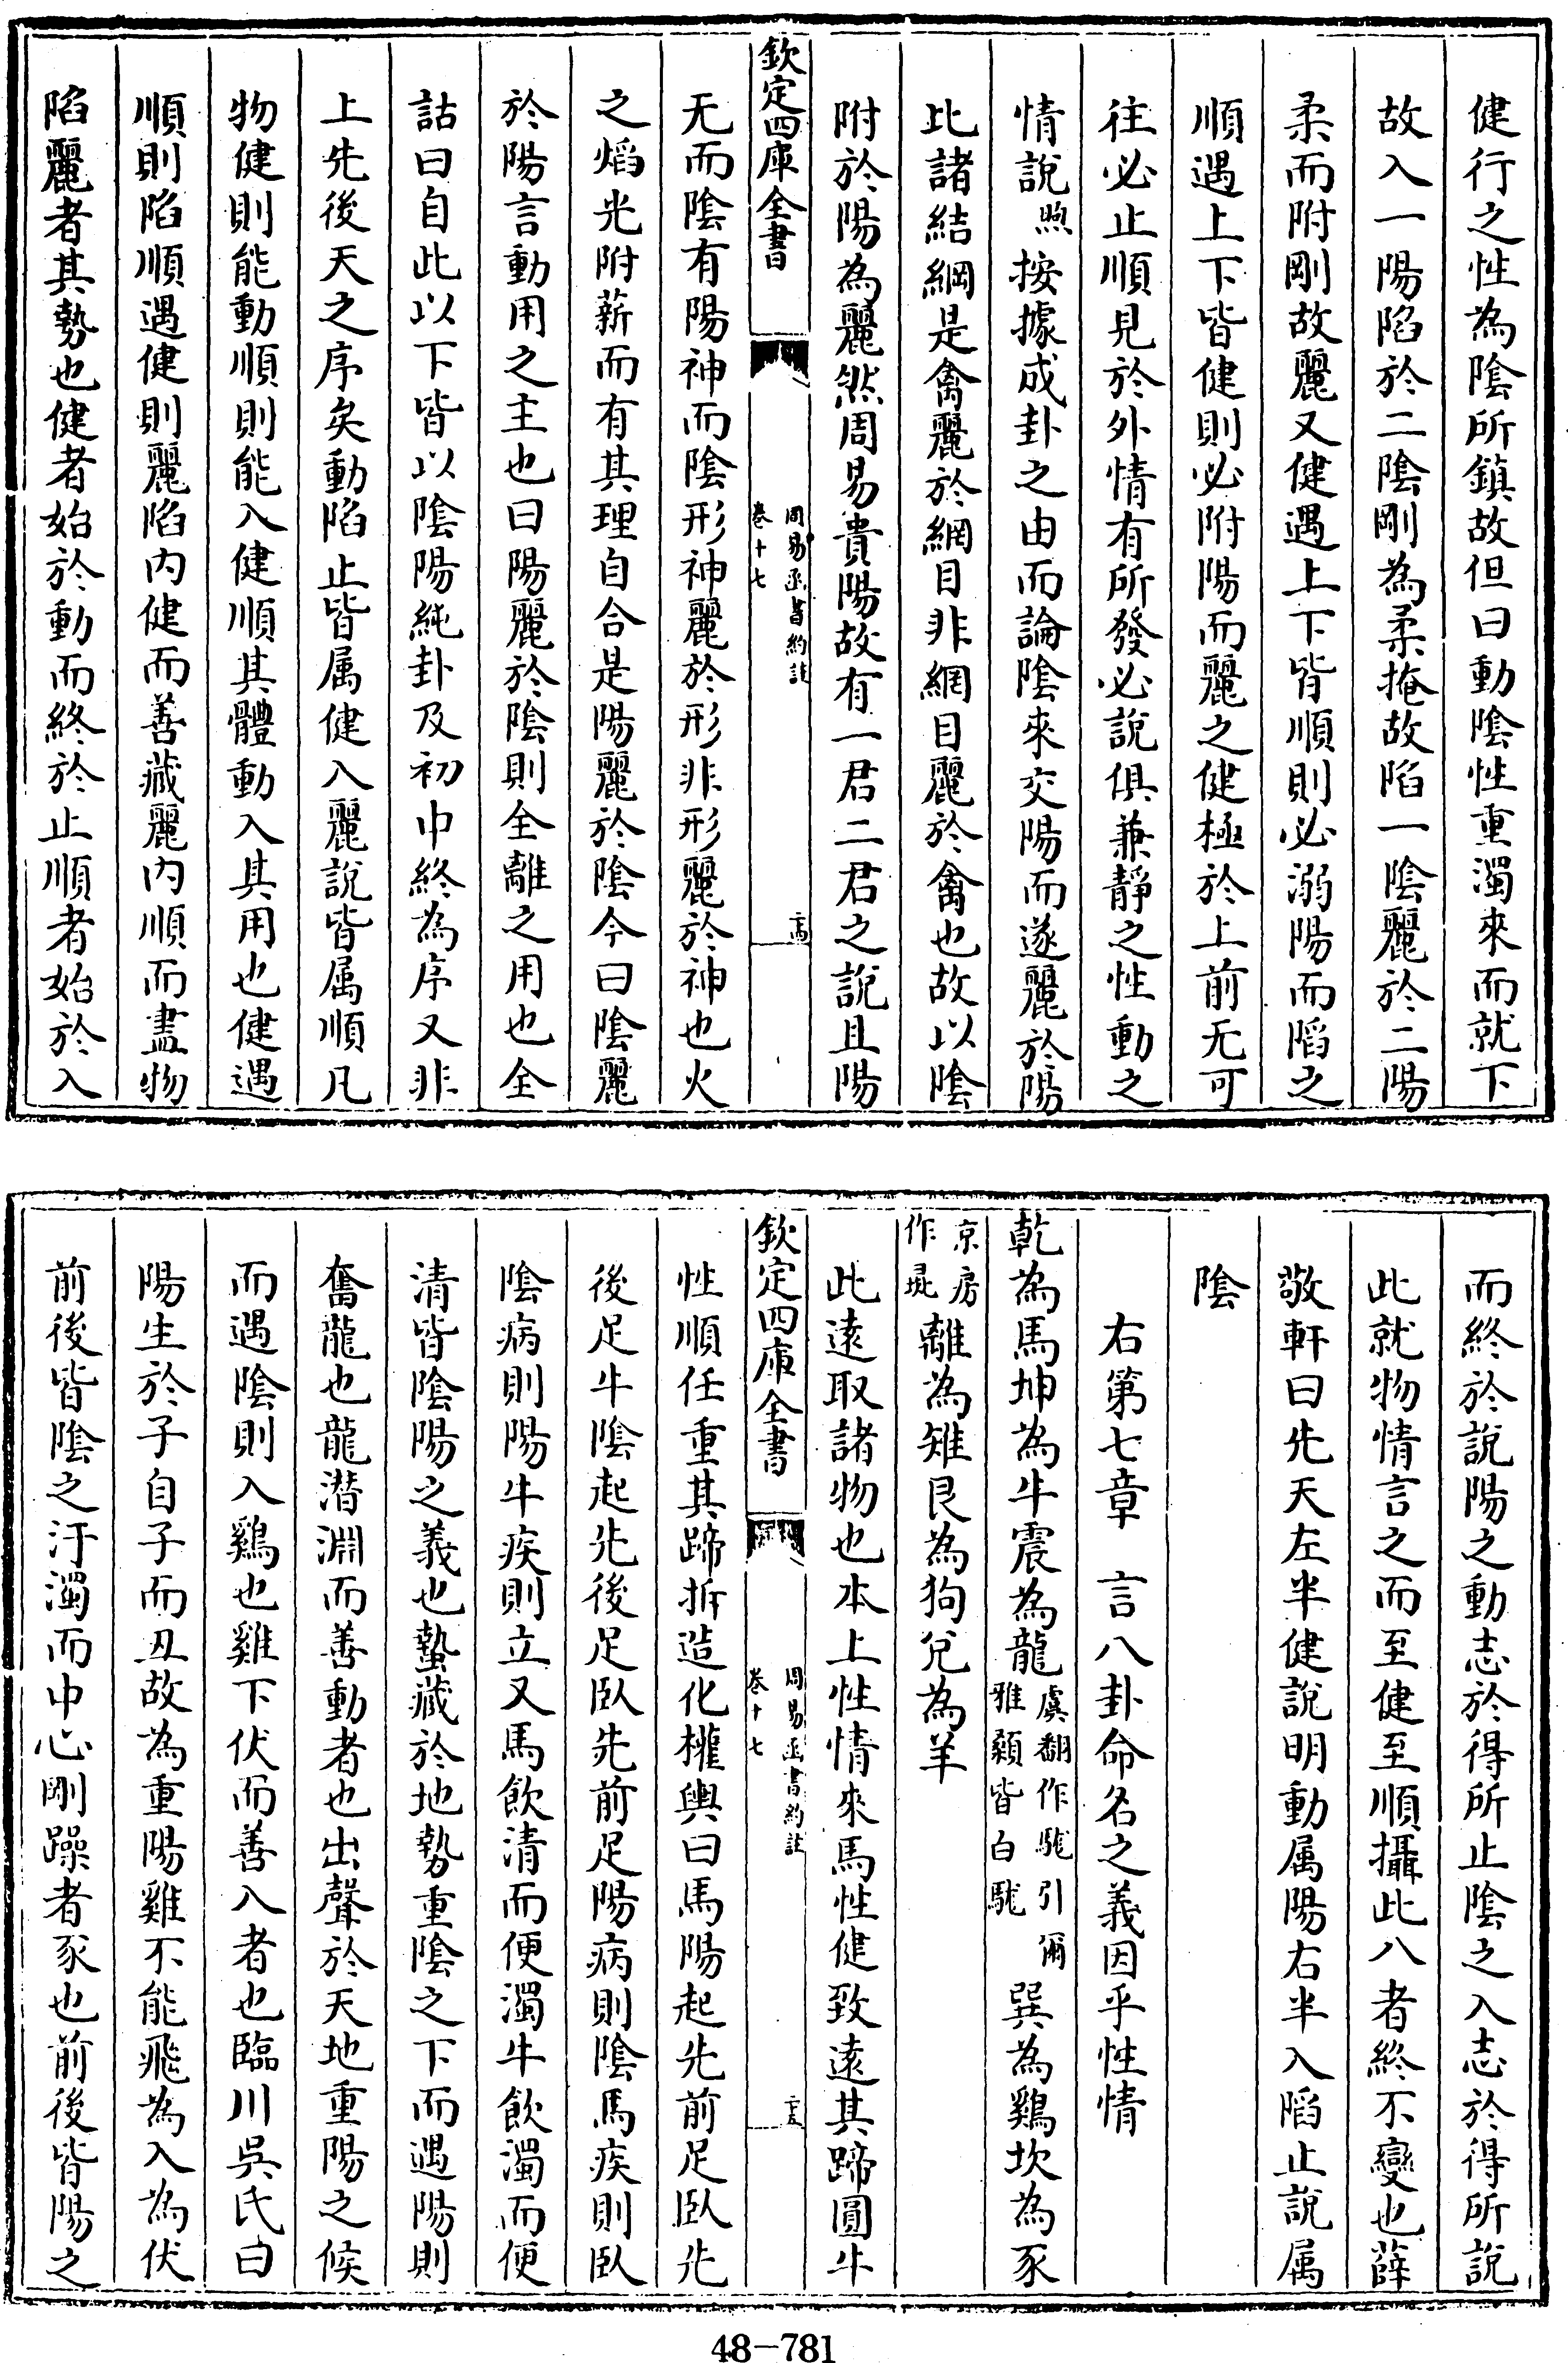 健行之性為陰所鎮故但曰動陰性重濁來而就下
故入一陽陷於二陰剛為柔掩故陷一陰麗於二陽
柔而附剛故麗又健遇上下皆順則必溺陽而陷之
順遇上下皆健則必附陽而麗之健極於上前无可
往必止順見於外情有所發必說俱兼靜之性動之
情說煦按據成卦之由而論陰來交陽而遂麗於陽
此諸結網是禽麗於網目非網目麗於禽也故以陰
附於陽為麗然周易貴陽故有一君二君之說且陽
欽定四庫全書
周易函書約註
卷十七
十四
无而陰有陽神而陰形神麗於形非形麗於神也火
之熖光附薪而有其理自合是陽麗於陰今曰陰麗
於陽言動用之主也曰陽麗於陰則全離之用也全
詁曰自此以下皆以陰陽純卦及初中終為序又非
上先後天之序矣動陷止皆属健入麗說皆属順凡
物健則能動順則能入健順其體動入其用也健遇
順則陷順遇健則麗陷內健而善藏麗內順而盡物
陷麗者其勢也健者始於動而終於止順者始於入
而終於說陽之動志於得所止陰之入志於得所說
此就物情言之而至健至順攝此八者終不變也薛
敬軒曰先天左半健說明動属陽右半入陷止說属
陰
右第七章 言八卦命名之義因乎性情
乾為馬坤為牛震為龍虞翻作駹引爾
雅顙皆白駹巽為鷄坎為豕
京房
作琨離為雉艮為狗兌為羊
此遠取諸物也本上性情來馬性健致遠其蹄圓牛
欽定四庫全書
周易函書約註
卷十七
十五
性順任重其蹄拆造化權輿曰馬陽起先前足臥先
後足牛陰起先後足臥先前足陽病則陰馬疾則臥
陰病則陽牛疾則立又馬飲清而便濁牛飲濁而便
清皆陰陽之義也蟄藏於地勢重陰之下而遇陽則
奮龍也龍潛淵而善動者也出聲於天地重陽之候
而遇陰則入鷄也雞下伏而善入者也臨川吳氏曰
陽生於子自子而丑故為重陽雞不能飛為入為伏
前後皆陰之汙濁而中心剛躁者豕也前後皆陽之
48-781